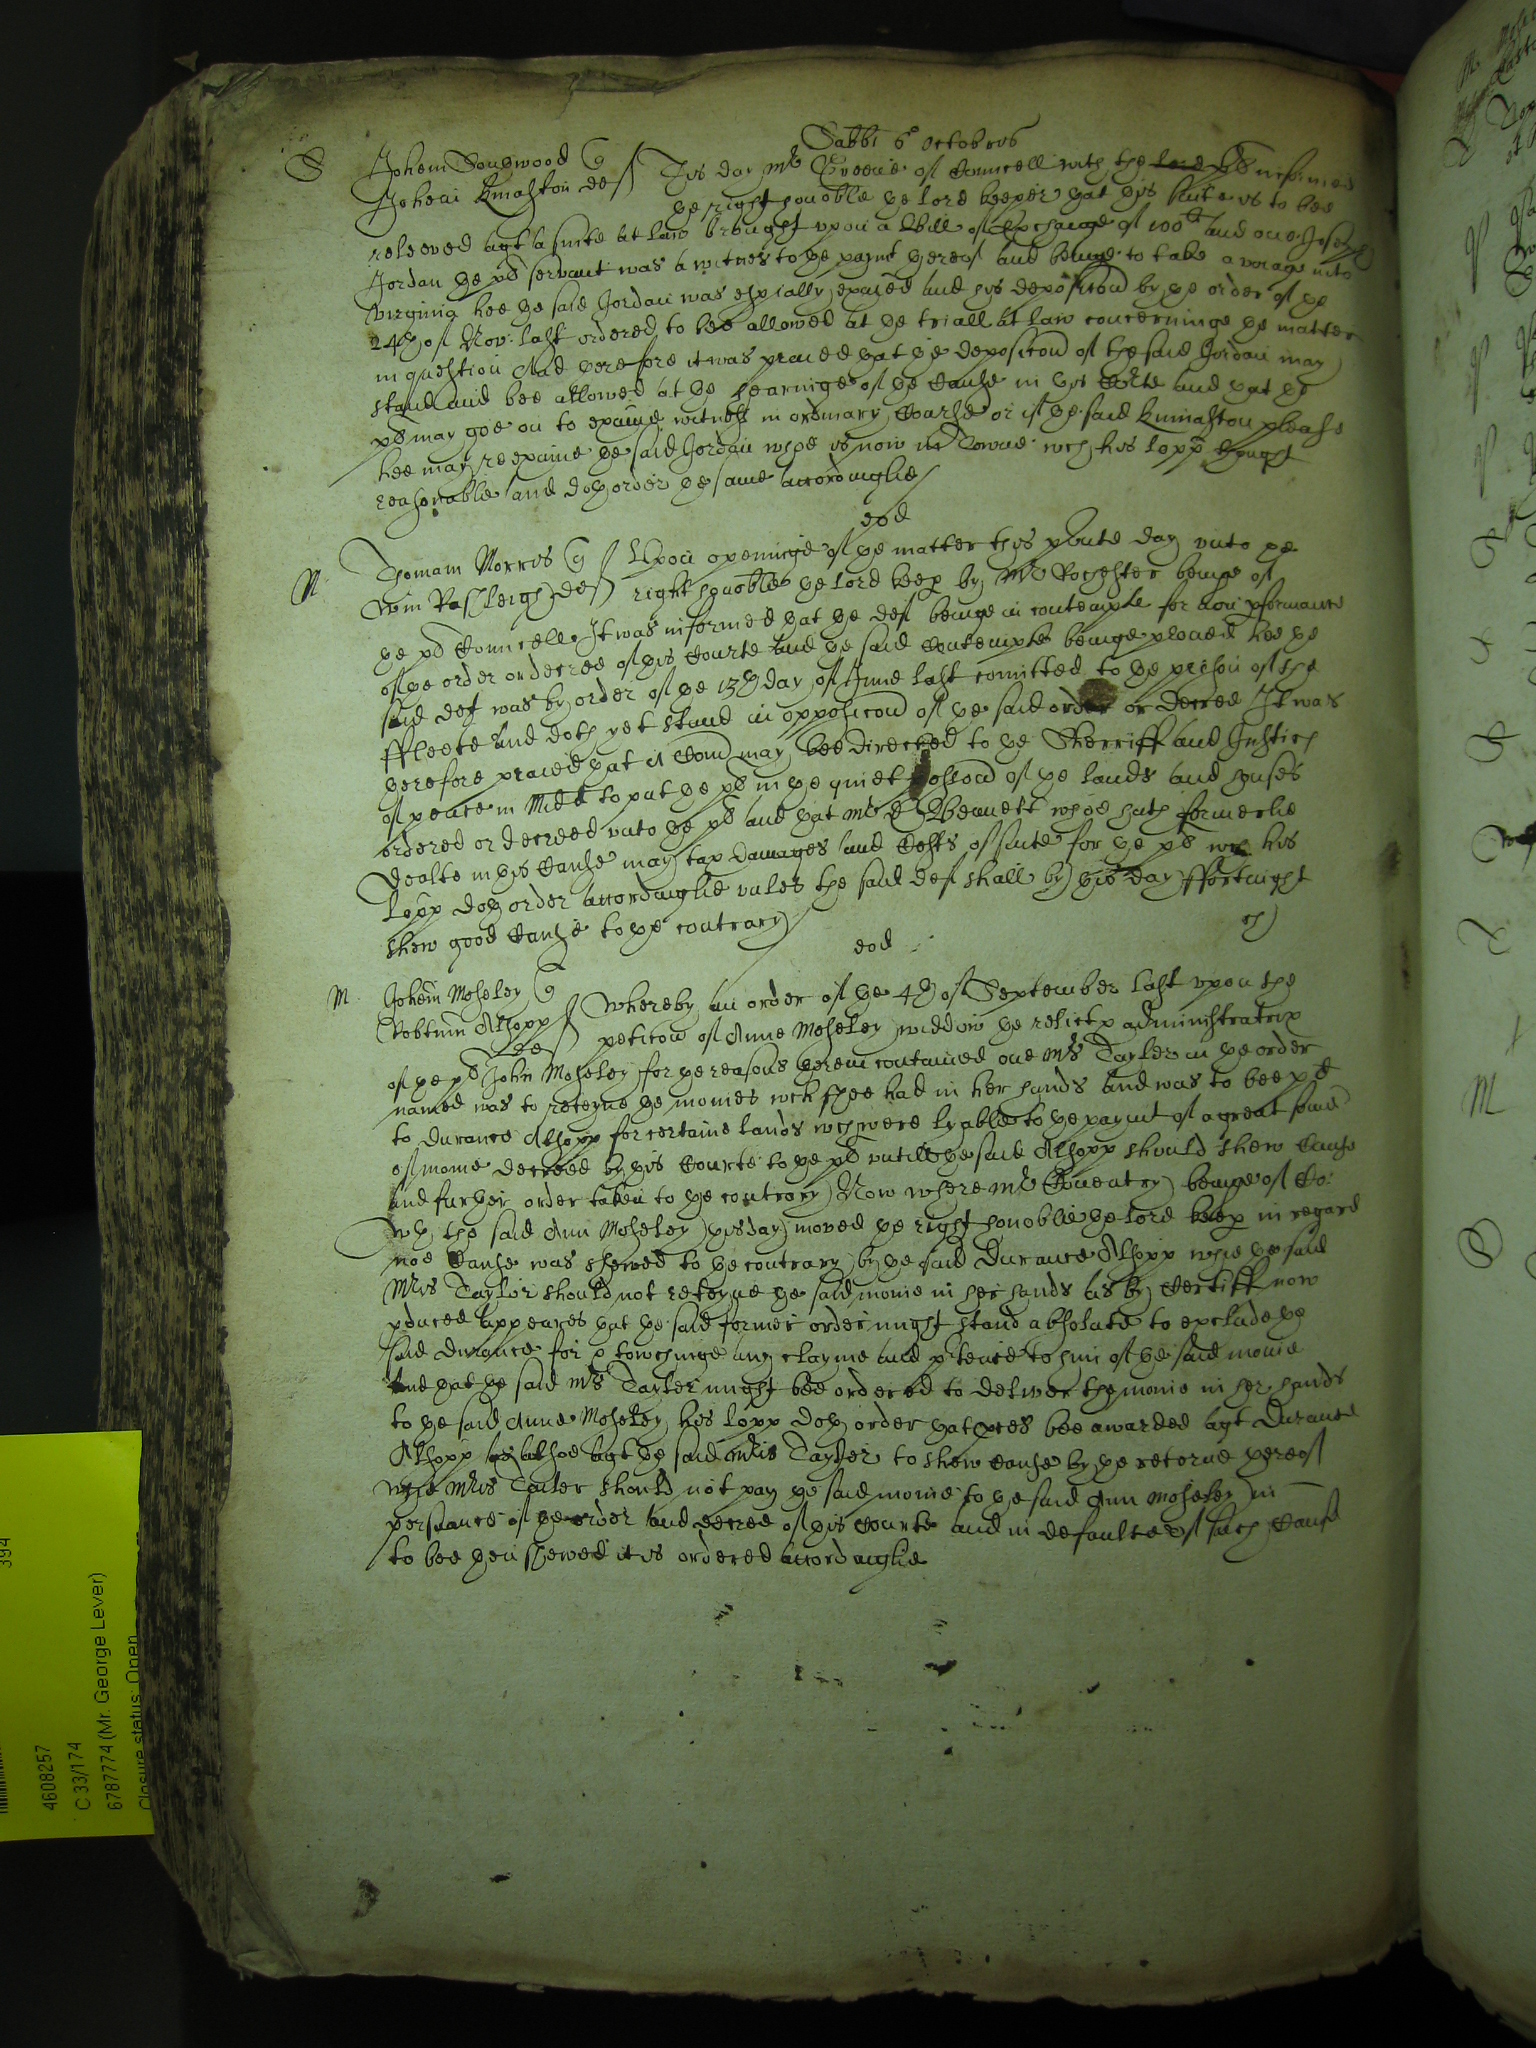 Sabbi 6o Octobris
S
Johem Songwood q
Johem Kinaston def
This day Mr Greene of Councell with the lord pl informed
ye right honoble ye lord keeper yat yis suite is to bee
releeved agt a suite at law brought vpon a Bill of Exchange of 100l and one Joseph
Jordan ye pl servant was a witnes to ye paymt yereof and beinge to take a voiage into
Virginia hee ye said Jordan was espially exaied and his deposicon by ye order of ye
24th of Nov: last ordered to bee allowed at ye triall at law concerninge ye matter
in question And yerefore it was praied yat ye deposicon of the said Jordan may
stand and bee allowed at ye hearinge of ye Cause in yis Corte and yat ye
pl may goe on to exaine witness in ordinary Course or if ye said Kinaston please
hee may reexaine ye said Jordan whoe is now in Towne wch his lopp thought
reasonable and doth order ye same accordinglie
eod
M
Thomam Morris q
Wm Rasleigh def
Vpon openinge of ye matter this psente day vnto ye
right honoble ye lord keep by Mr Rochester beinge of
ye pl Councell It was informed yat ye def beinge in contempte for non pformance
of ye order or decree of yis Courte and ye said Contempte beinge ploned hee ye
said def was by order of ye 13th day of June last comitted to ye prison of the
ffleete and doth yet stand in opposicon of ye said order or decree It was
yerefore praied yat a Comn may bee directed to ye Sherriff and Justics
of peace in Midd to put ye pl in ye quiet possion of ye lands and houses
ordered or decreed vnto ye pl and yat Mr Bennett whoe hath formerlie
dealte in yis Cause may tax damages and Costs of suite for ye pl wch his
lopp doth order accordinglie vnles the said def shall by yis day ffortnight
shew good Cause to ye contrary
eod
M
Johem Moseley q
Robtum Alsopp
def
Whereby an order of ye 4th of September last vpon the
peticon of Anne Moseley widdow ye relict & administratrix
of ye pl John Moseley for ye reasons yerein contained one Mrs Tayler in ye order
named was to reteyne ye monies wch shee had in her hands and was to bee pd
to Durance Alsopp for certaine lands wch were lyable to ye paymt of a great some
of monie decreed by yis Courte to ye pl vntill ye said Alsopp should shew Cause
and further order taken to ye contrary Now where Mr Coventry beinge of Co:
wth the said Ann Moseley yis day moved ye right honoblie ye lord keep in regard
noe Cause was shewed to ye contrary by ye said Durance Alsopp whie ye said
Mris Taylor should not reteyne ye said monie in her hands as by Certiff now
pduced appeares yat ye said former order might stand absolute to exclude ye
said Durance for & towchinge any clayme and ptence to him of ye said monie
And yat ye said Mrs Tayler might bee ordered to deliver the monie in her hands
to ye said Anne Moseley his lopp doth order yat pces bee awarded agt Durance
Alsopp as alsoe agt ye said Mris Tayler to shew Cause by ye retorne yereof
whie Mris Tailer should not pay ye said monie to ye said Ann Moseley in
persuance of ye order and decree of yis Courte and in defaulte of such Cause
to bee yen shewed it is ordered accordinglie
394
4608257
C 33/174
6787774 (Mr. George Lever)
Closure status: Open